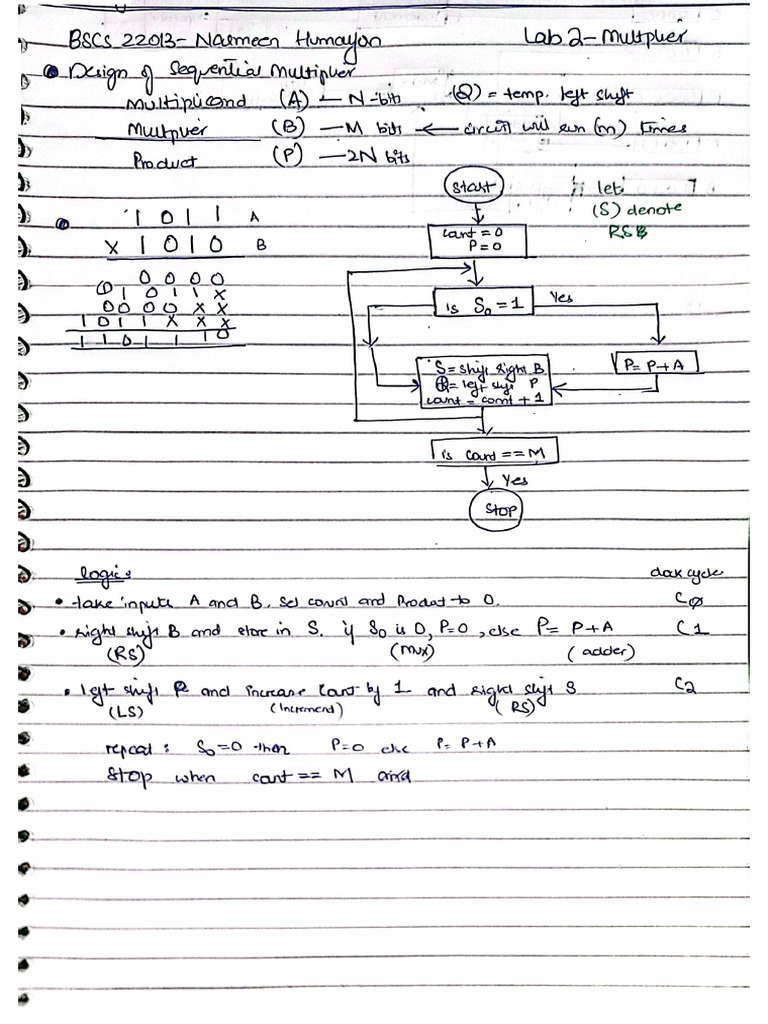 BSCS 22013- Narmeen Humayon
Lab 2- Multplier
Design of Sequential Multiplier
Multiplicand (A) — N-bits (Q) = temp. left shift
Multplier (B) — M bits ← circuit will run (m) times
Product (P) — 2N bits
Start
let
(S) denote
RSB
1 0 1 1 A
x 1 0 1 0 B
0 0 0 0
0 1 0 1 1 x
0 0 0 0 x x
1 0 1 1 x x x
1 1 0 1 1 1 0
count = 0
P = 0
is S0 = 1
Yes
P = P + A
S = shift right B
Q = left shift P
count = count + 1
is count == M
Yes
Stop
logic:
clock cycle
• take inputs A and B. Set count and Product to 0. C0
• Right shift B and store in S. if S0 is 0, P=0, else P = P+A C1
(RS) (Mux) (adder)
• left shift P and increase count by 1 and right shift S C2
(LS) (Increment) (RS)
repeat: S0=0 then P=0 else P= P+A
Stop when count == M and